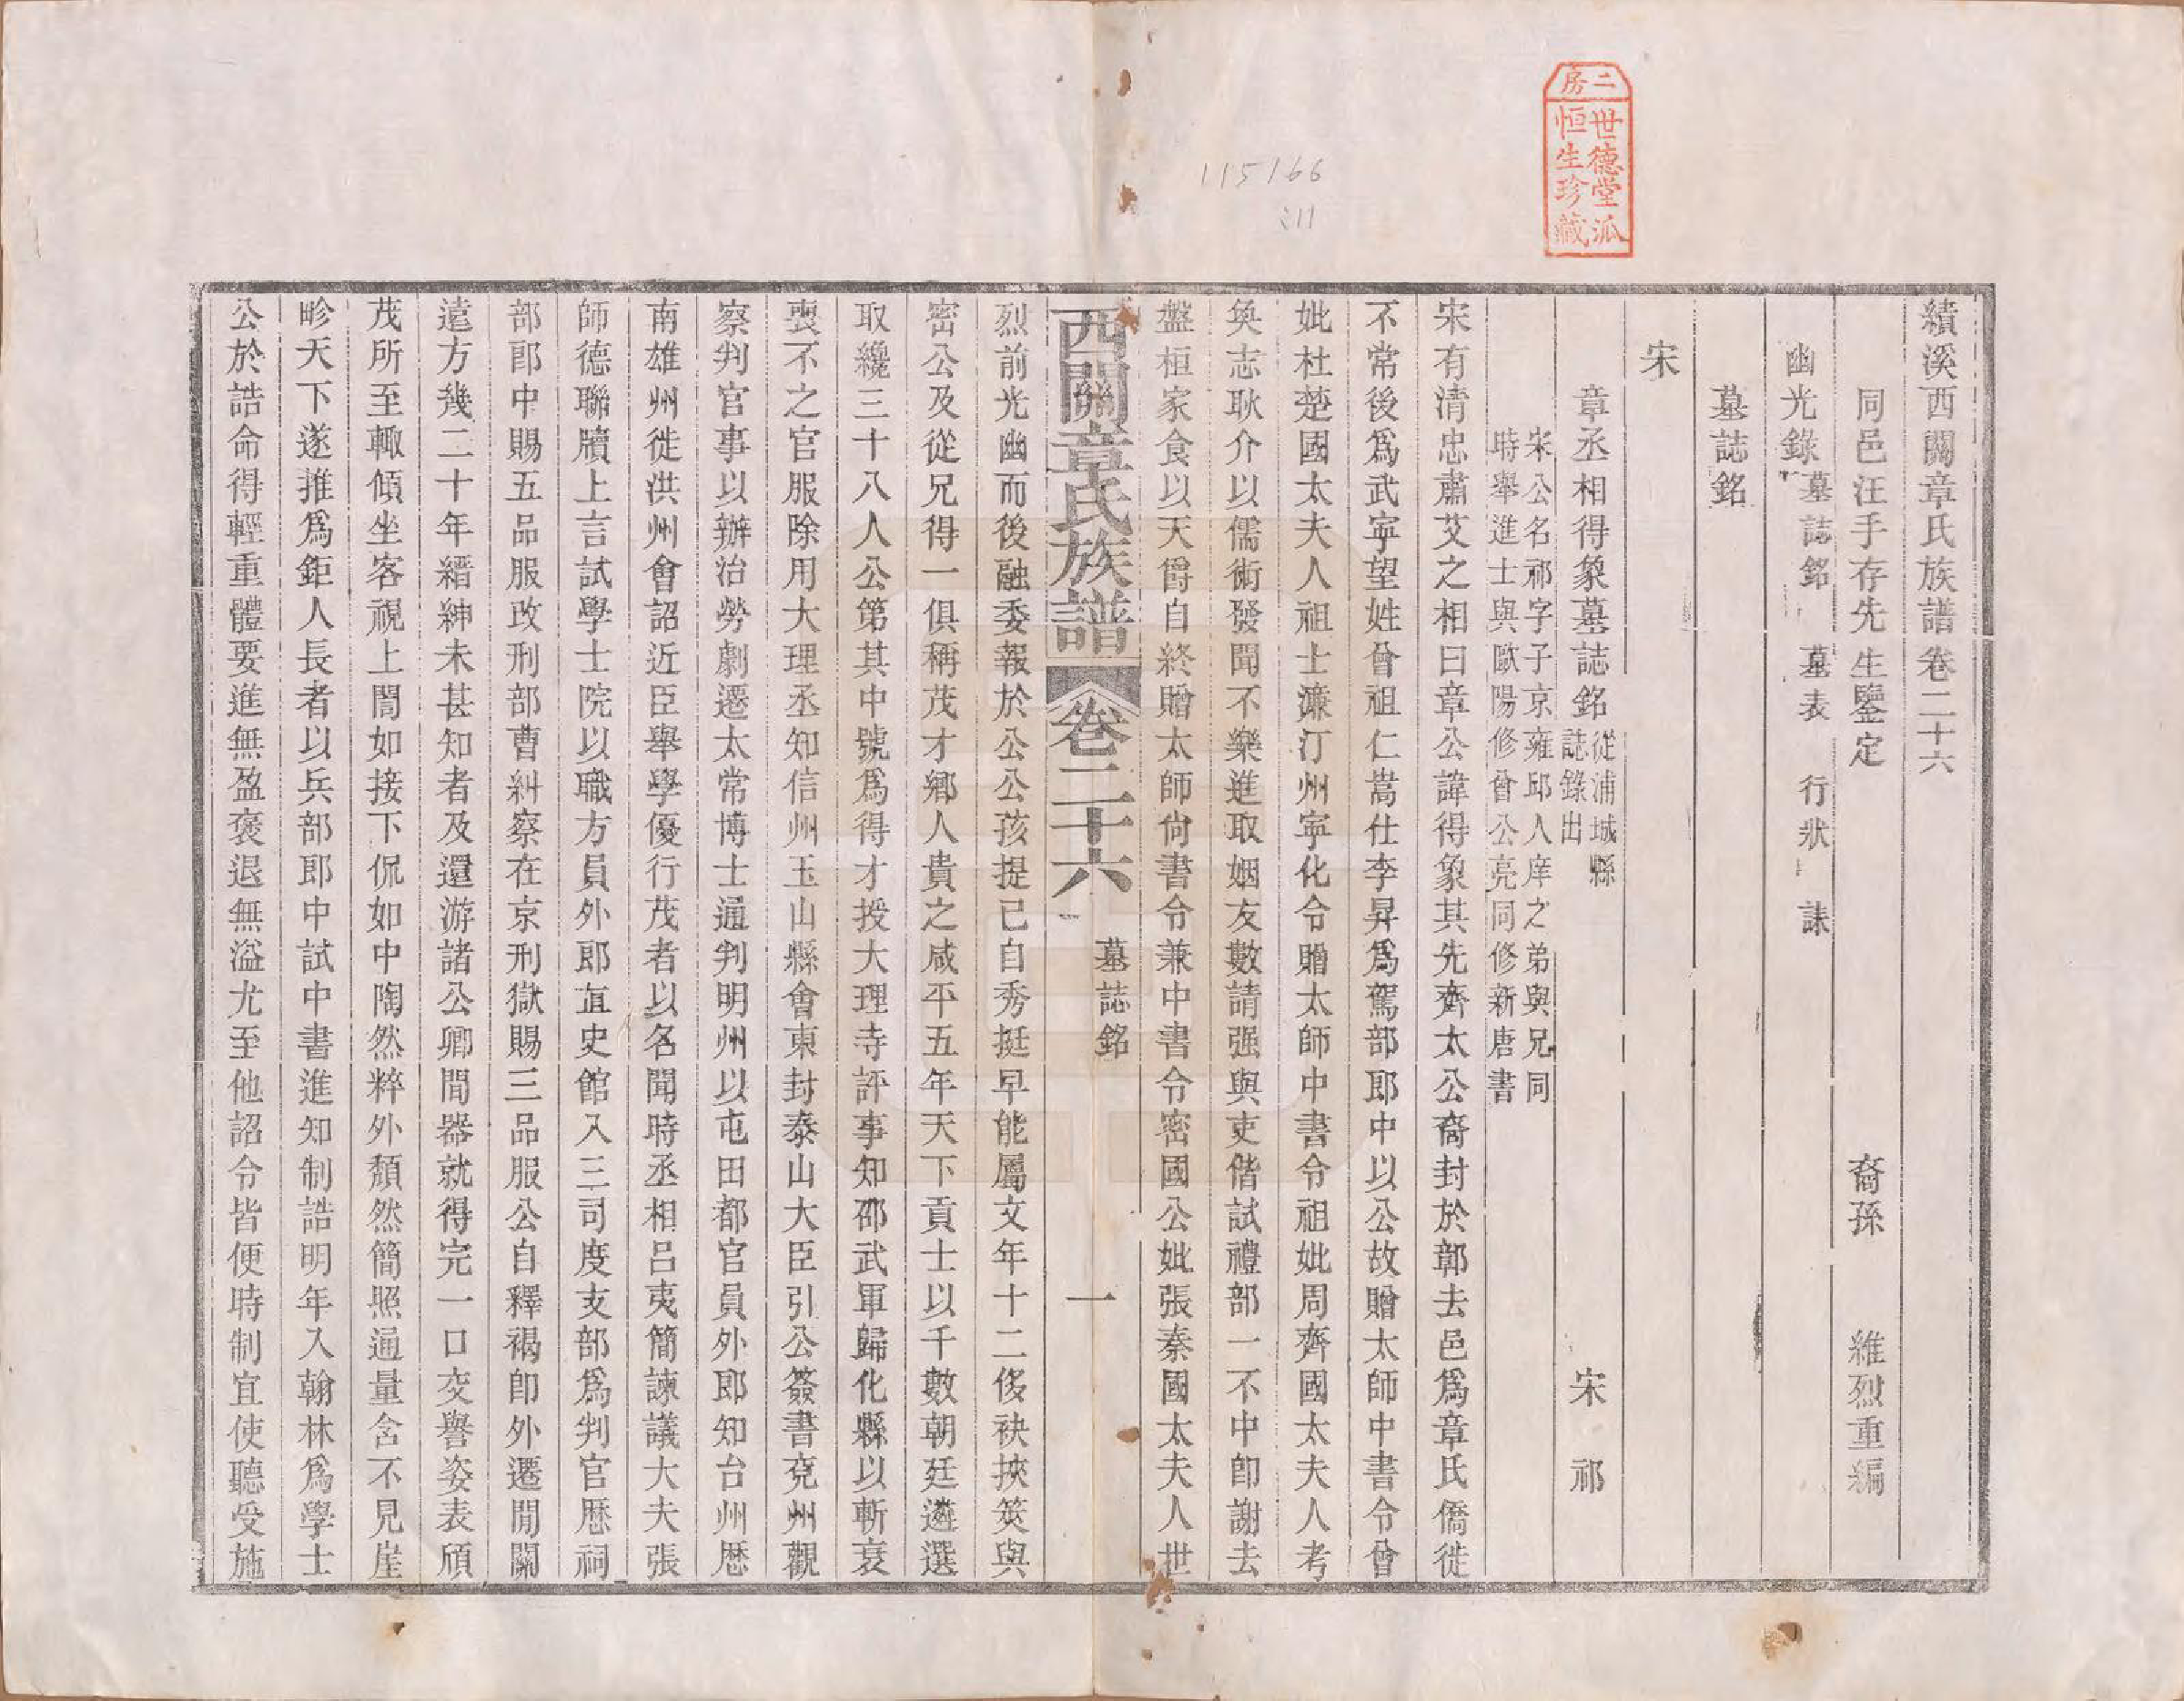 二房
世德堂派
恒生珍藏
115166
211
績溪西關章氏族譜卷二十六
同邑汪手存先生鑒定 裔孫 維烈重編
幽光錄 墓誌銘 墓表 行狀 誄
墓誌銘
宋
章丞相得象墓誌銘 從浦城縣誌錄出 宋祁
宋公名祁字子京雍邱人庠之弟與兄同
時舉進士與歐陽修曾公亮同修新唐書
宋有清忠肅艾之相曰章公諱得象其先齊太公裔封於鄣去邑爲章氏僑徙
不常後爲武寧望姓曾祖仁嵩仕李昇爲駕部郎中以公故贈太師中書令曾
妣杜楚國太夫人祖士濂汀州寧化令贈太師中書令祖妣周齊國太夫人考
奐志耿介以儒術發聞不樂進取姻友數請强與吏偕試禮部一不中卽謝去
盤桓家食以天爵自終贈太師尙書令兼中書令密國公妣張秦國太夫人世
西關章氏族譜 卷二十六 墓誌銘 一
烈前光幽而後融委報於公公孩提已自秀挺早能屬文年十二侈袂挾筴與
密公及從兄得一俱稱茂才鄉人貴之咸平五年天下貢士以千數朝廷遴選
取纔三十八人公第其中號爲得才授大理寺評事知邵武軍歸化縣以斬衰
喪不之官服除用大理丞知信州玉山縣會東封泰山大臣引公簽書兗州觀
察判官事以辦治勞劇遷太常博士通判明州以屯田都官員外郎知台州歷
南雄州徙洪州會詔近臣舉學優行茂者以名聞時丞相呂夷簡諫議大夫張
師德聯牘上言試學士院以職方員外郎直史館入三司度支部爲判官歷祠
部郎中賜五品服改刑部曹糾察在京刑獄賜三品服公自釋褐卽外遷閒關
遠方幾二十年縉紳未甚知者及還游諸公卿間器就得完一口交譽姿表頎
茂所至輒傾坐客視上誾如接下侃如中陶然粹外頹然簡照通量含不見崖
畛天下遂推爲鉅人長者以兵部郎中試中書進知制誥明年入翰林爲學士
公於誥命得輕重體要進無盈褒退無溢尤至他詔令皆便時制宜使聽受施